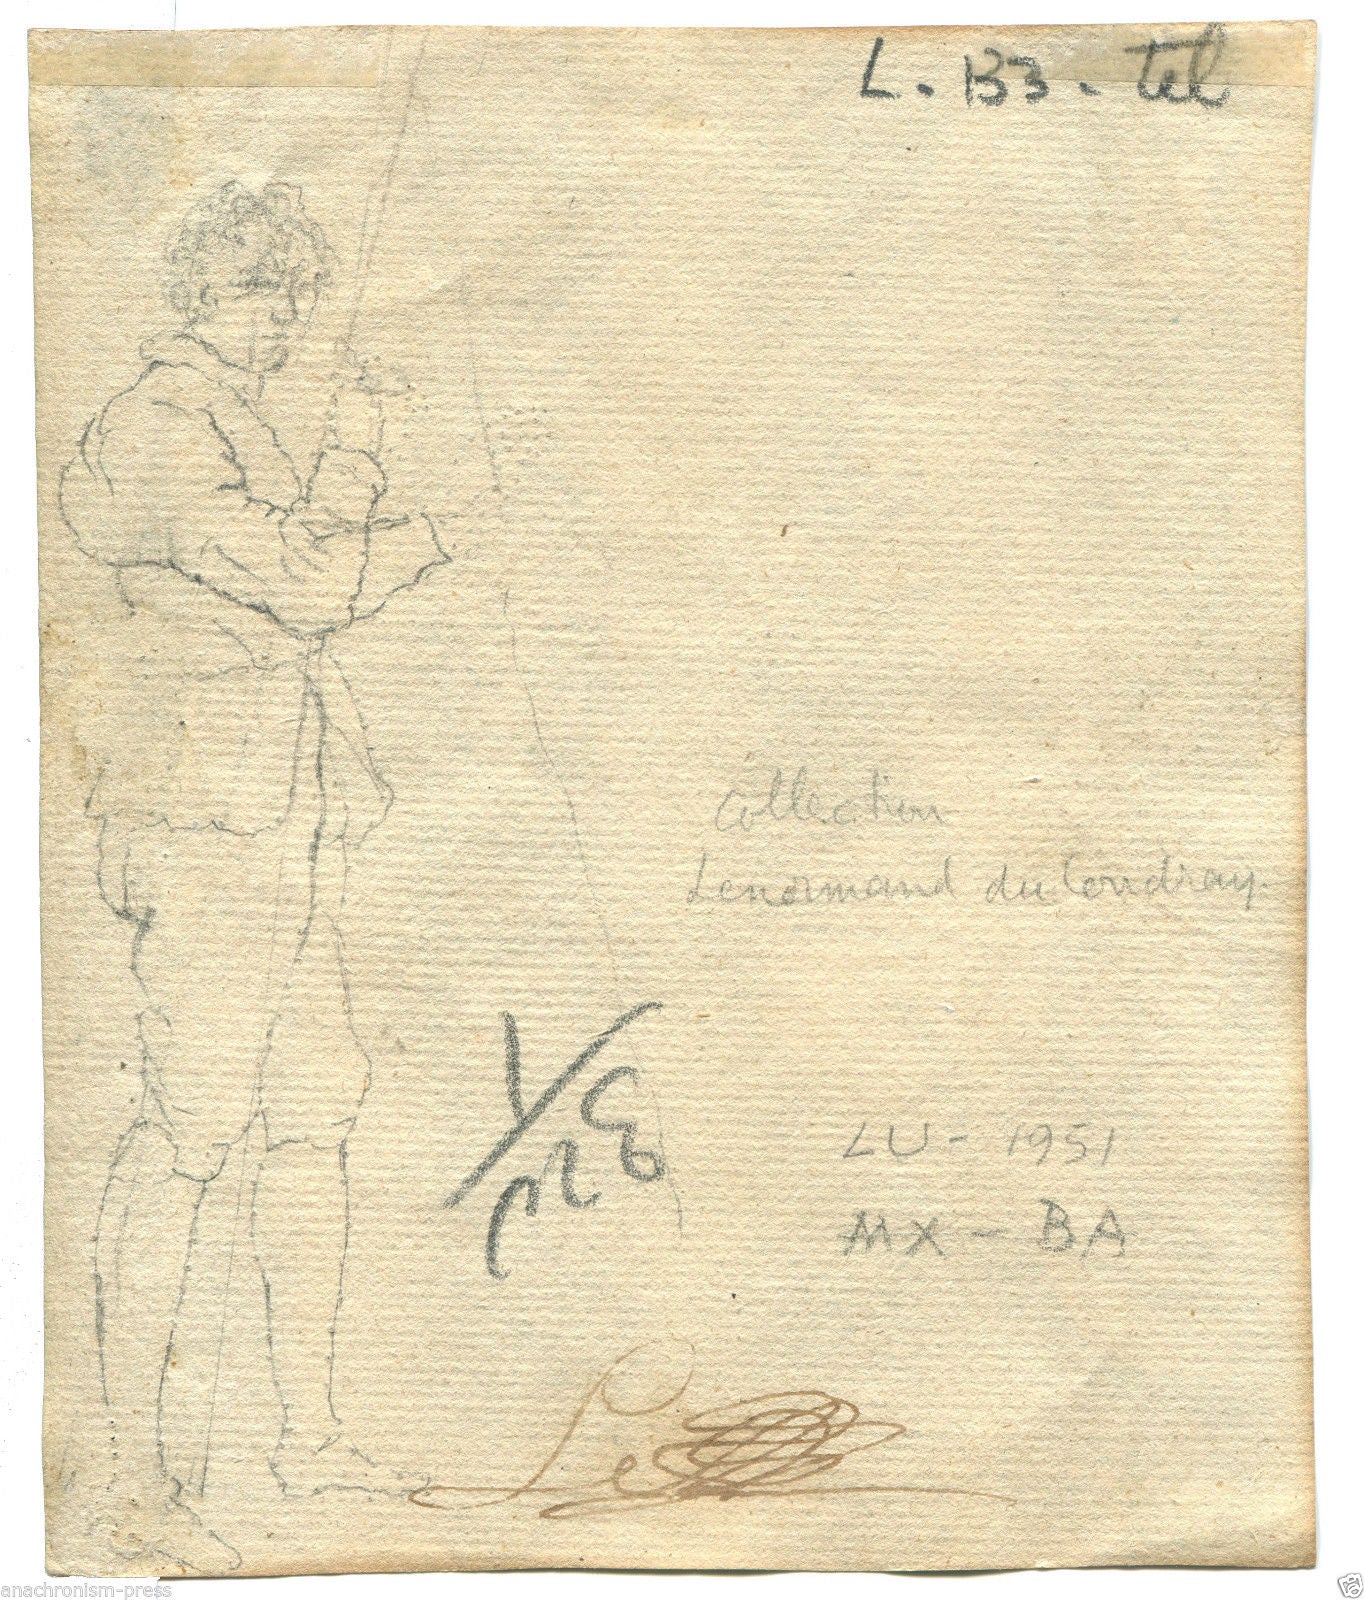 L. B3 - tel
Collection
Lenormand du Coudray.
LU - 1951
MX - BA
Le
anachronism-press